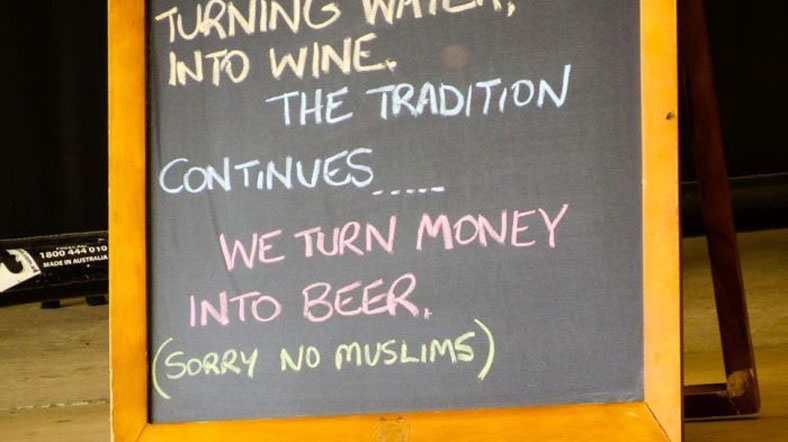 TURNING WATER,
INTO WINE.
THE TRADITION
CONTINUES.....
WE TURN MONEY
INTO BEER.
(SORRY NO MUSLIMS)
1800 444 010
MADE IN AUSTRALIA